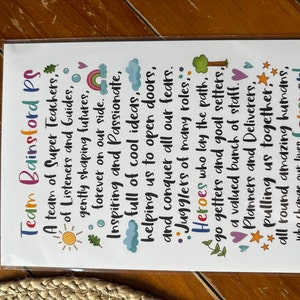 Team Bainsford PS
A team of Super Teachers
of Listeners and Guides,
gently shaping futures,
forever on our side.
Inspiring and Passionate,
full of cool ideas
helping us to open doors,
and conquer all our fears.
Jugglers of many roles
Heroes who lay the path,
go getters and goal setters,
a valued bunch of staff.
Planners and Deliverers,
pulling us together,
all round amazing human